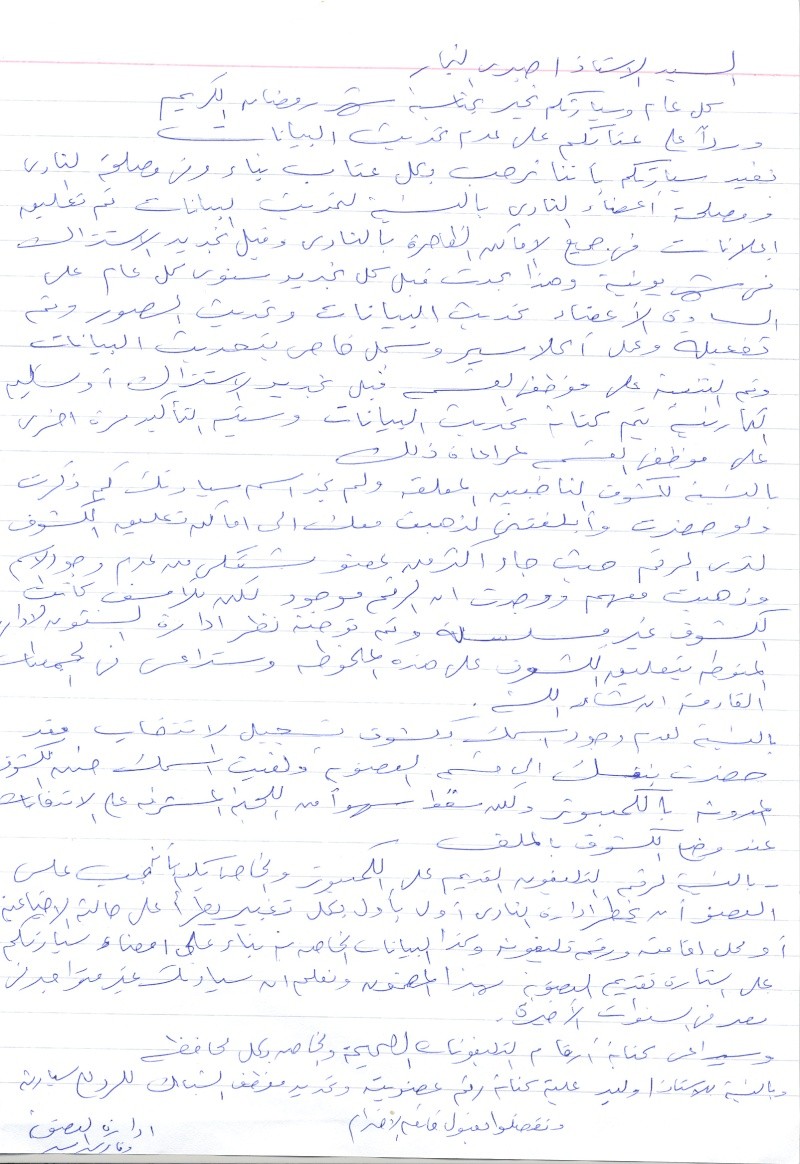 السيد الاستاذ / صبرى النجار
كل عام وسيادتكم بخير بمناسبة شهر رمضان الكريم
ورداً على عتابكم على عدم تحديث البيانات
نفيد سيادتكم بأننا نرحب بكل عتاب بناء وفى مصلحة النادى
ومصلحة أعضاء النادى بالنسبة لتحديث البيانات تم تعليق
اعلانات فى جميع الاماكن الظاهرة بالنادى وقبل تجديد الاشتراك
فى شهر يونية وهذا يحدث قبل كل تجديد سنوى كل عام على
السادة الأعضاء تحديث البيانات وتحديث الصور وتم
تفعيله وعمل أكلاسير وسجل خاص بتحديث البيانات
وتم التنبية على موظفى القسم قبل تجديد الاشتراك أو تسليم
الكارنية يتم كتابة تحديث البيانات وسيتم التأكيد مرة اخرى
على موظفى القسم لمراعاة ذلك
بالنسبة لكشوف الناخبين المعلقه ولم تجد اسم سيادتك كم ذكرت
ولو حضرت وأبلغتنى لذهبت معك الى اماكن تعليق الكشوف
لترى الرقم حيث جاء اكثر من عضو يشتكى من عدم وجود الاسم
وذهبت معهم ووجدت ان الرقم موجود لكن للأسف كانت
الكشوف غير مسلسلة وتم توجية نظر ادارة الشئون الادارية
المنوطه بتعليق الكشوف على هذه الملحوظه وستراعى فى الجمعيات
القادمة ان شاء الله .
بالنسبة لعدم وجود اسمك بكشوف تسجيل الانتخاب فقد
حضرت بنفسك الى قسم العضوية ولقيت اسمك ضمن الكشوف
المدونه بالكمبيوتر ولكن سقط سهواً من اللجنة المشرفه على الانتخابات
عند وضع الكشوف بالملف
- بالنسبة لرقم التليفون القديم على الكمبيوتر والخاص بكم بأنه يجب على
العضو أن يخطر ادارة النادى أول بأول بكل تغيير يطرأ على حالته الاجتماعية
أو محل اقامته ورقم تليفونه وكذا البيانات الخاصه به بناء على امضاء سيادتكم
على استمارة تقديم العضوية بهذا المضمون ونعلم ان سيادتك غير متواجد فى
مصر فى السنوات الأخيرة .
وسيراعى كتابة أرقام التليفونات الصحيحة والخاصه بكل محافظة
وبالنسبة للاستاذ / وليد عليه كتابة رقم عضويته وتحديد موظف الشباك للرد على سيادته
وتفضلوا بقبول فائق الاحترام
ادارة العضوية